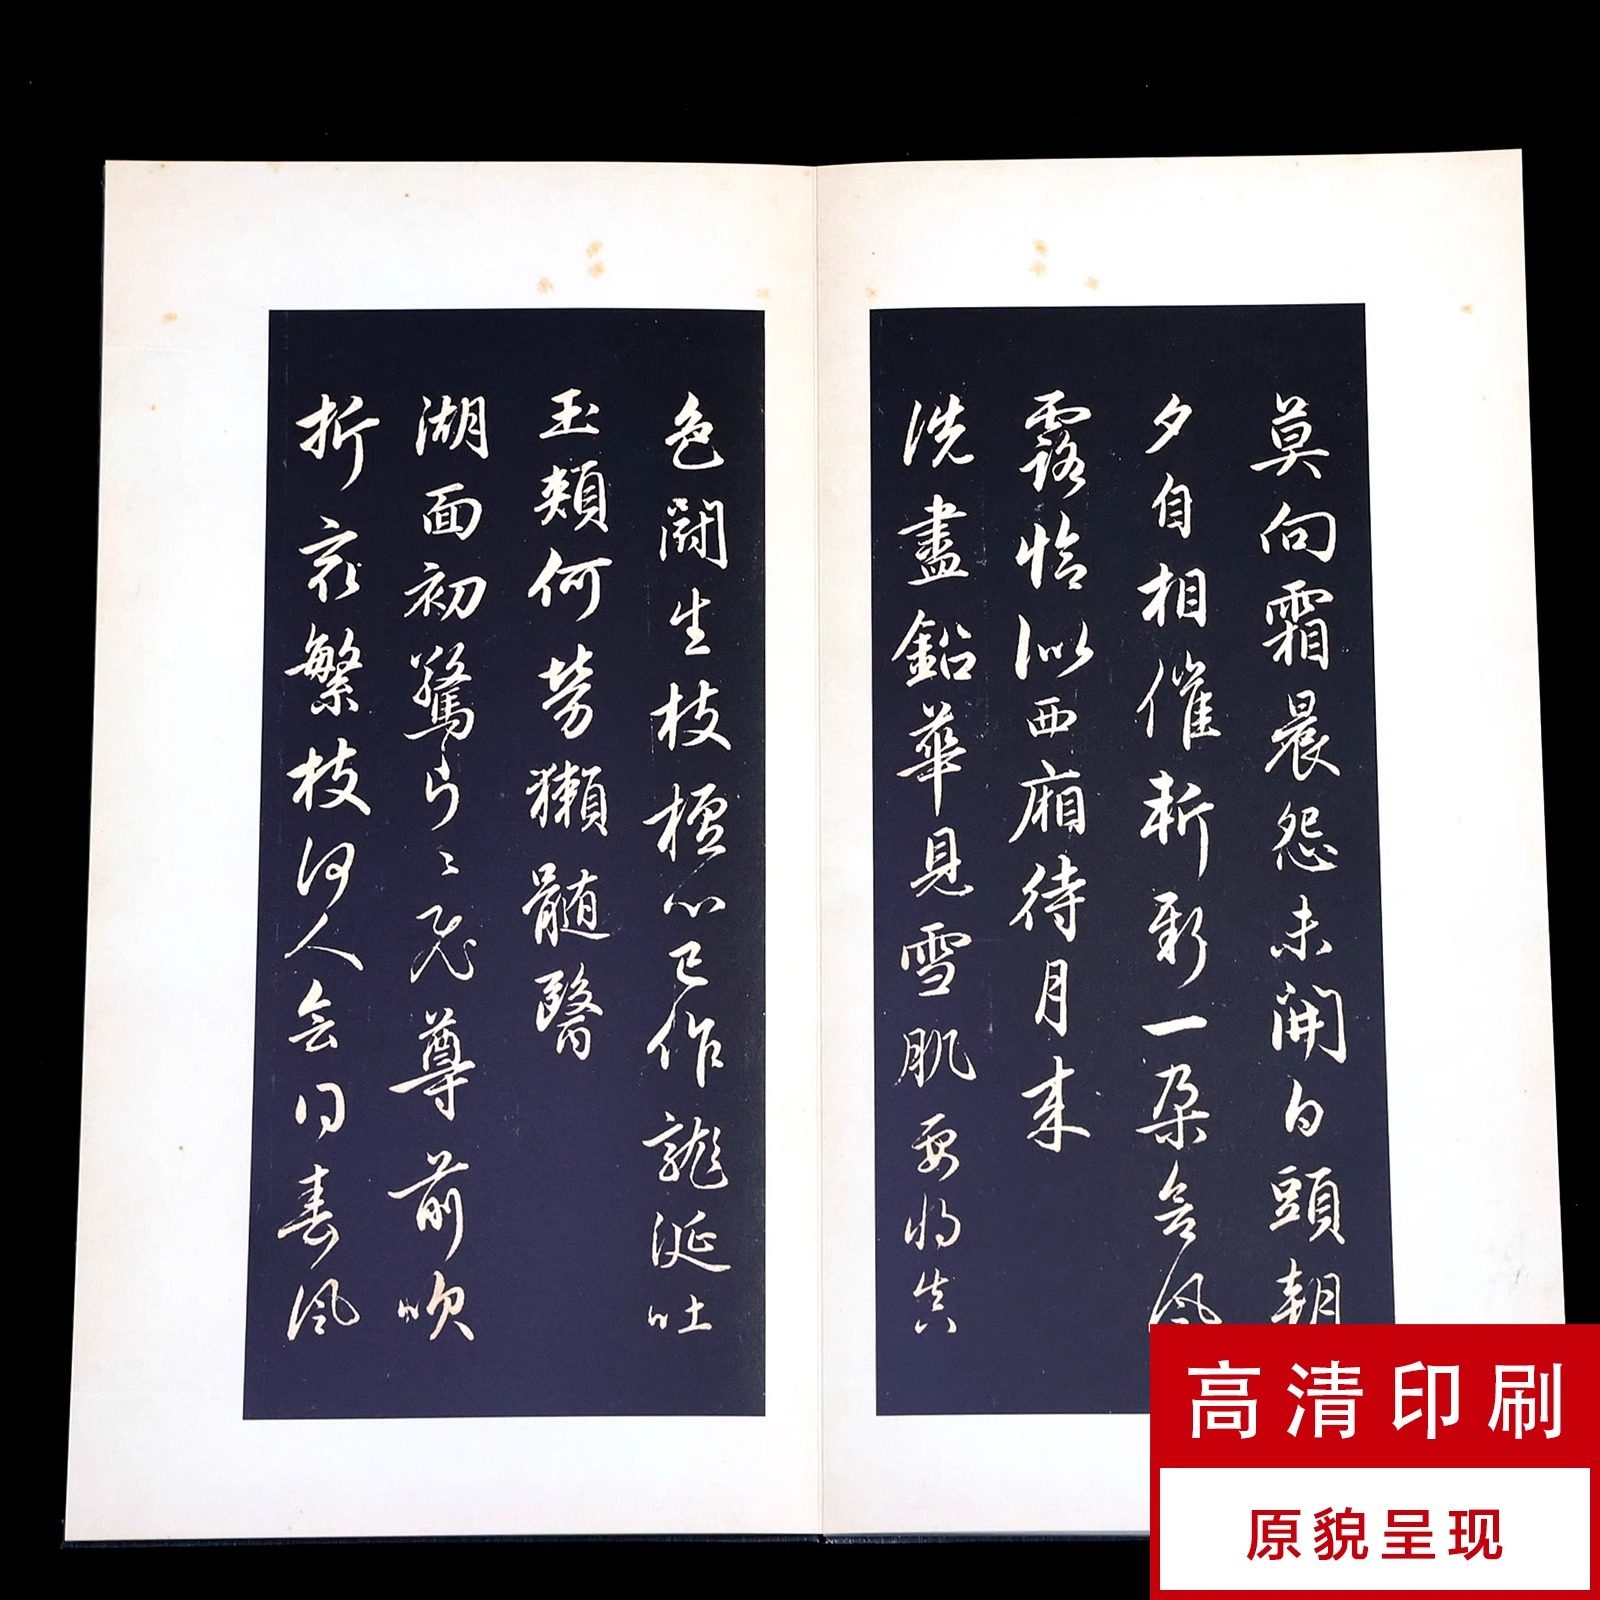 莫向霜晨怨未開白頭朝
夕自相催斬新一朵含風
露恰似西廂待月来
洗盡鉛華見雪肌要将真
色鬪生枝檀心已作龍涎吐
玉頰何勞獺髓醫
湖面初驚片々飛尊前吹
折最繁枝何人會得春風
高清印刷
原貌呈现